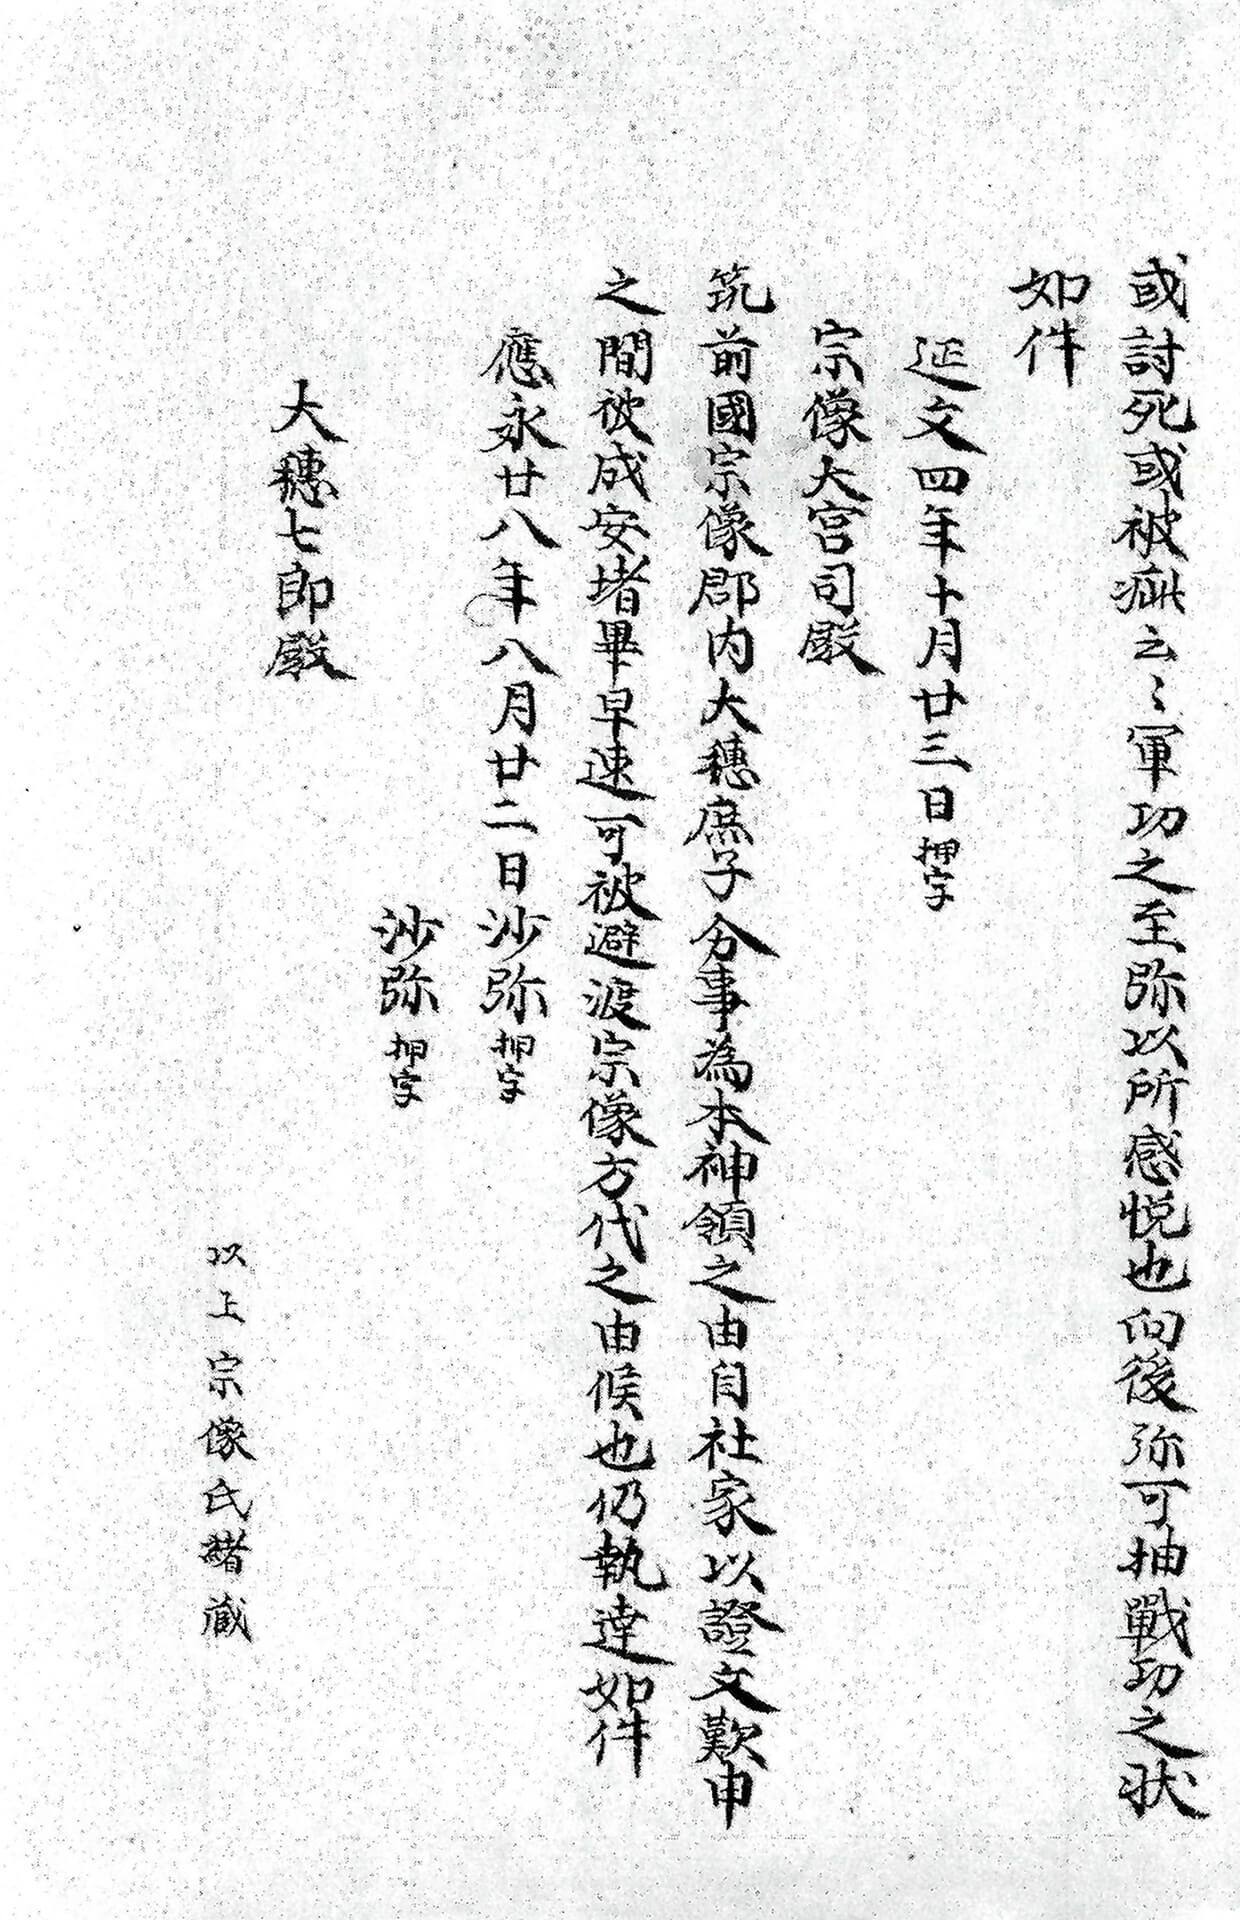 或討死或被疵云〻軍功之至弥以所感悦也向後弥可抽戰功之狀
如件
延文四年十月廿三日押字
宗像大宮司殿
筑前國宗像郡内大穗庶子分事為本神領之由自社家以證文歎申
之間被成安堵畢早速可被避渡宗像方代之由候也仍執達如件
應永廿八年八月廿二日沙弥押字
沙弥押字
大穗七郎殿
以上宗像氏緖蔵